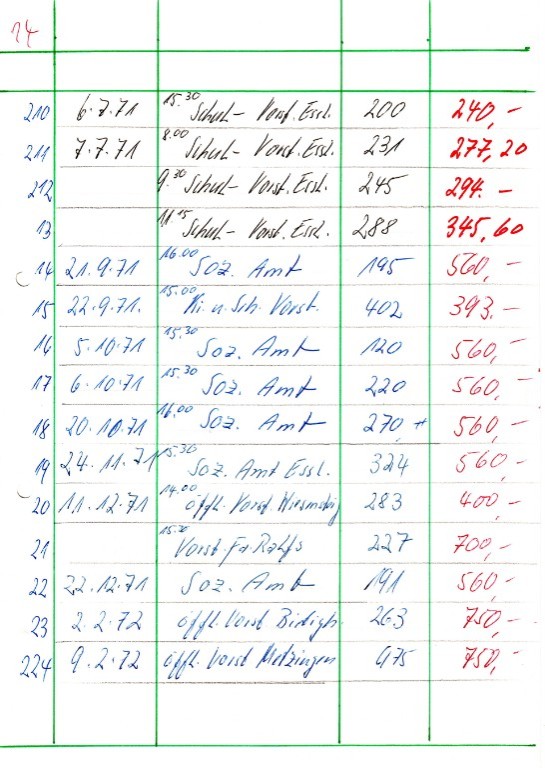 14
210 6.7.71 15.30 Schul- Vorst. Essl. 200 240,-
211 7.7.71 8.00 Schul- Vorst. Essl. 231 277,20
212 9.30 Schul- Vorst. Essl. 245 294.-
13 11.15 Schul- Vorst. Essl. 288 345,60
14 21.9.71 16.00 Soz. Amt 195 560,-
15 22.9.71. 15.00 Ki. u. Sch. Vorst. 402 393.-
16 5.10.71 15.30 Soz. Amt 120 560,-
17 6.10.71 15.30 Soz. Amt 220 560,-
18 20.10.71 16.00 Soz. Amt 270 + 560,-
19 24.11.71 15.30 Soz. Amt Essl. 324 560-
20 11.12.71 14.00 öffl. Vorst. 283 400,-
21 15.30 Vorst. Fa. Rahfs 227 700,-
22 22.12.71 Soz. Amt 191 560,-
23 2.2.72 öffl. Vorst 263 750,-
224 9.2.72 öffl. Vorst Metzingen 475 750,-